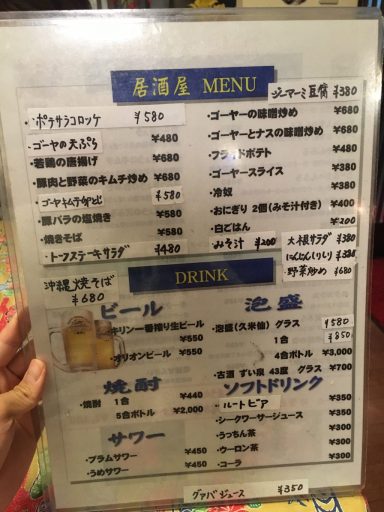 居酒屋 MENU
ジーマーミ豆腐 ¥380
・ポテサラコロッケ ¥580
・ゴーヤの天ぷら ¥480
・若鶏の唐揚げ ¥680
・豚肉と野菜のキムチ炒め ¥680
¥580
・豚バラの塩焼き ¥580
・焼きそば ¥580
・トーフステーキサラダ ¥480
・ゴーヤーの味噌炒め ¥680
・ゴーヤーとナスの味噌炒め ¥680
・フライドポテト ¥480
・ゴーヤースライス ¥380
・冷奴 ¥380
・おにぎり 2個(みそ汁付き) ¥400
・白ごはん ¥200
・みそ汁 ¥200
大根サラダ ¥380
にんじんしりしり ¥380
野菜炒め ¥680
沖縄焼そば
¥680
DRINK
ビール
・キリン一番搾り生ビール
¥550
・オリオンビール ¥550
焼酎
・焼酎 1合 ¥440
5合ボトル ¥2,000
サワー
・プラムサワー ¥450
・うめサワー ¥450
泡盛
・泡盛(久米仙) グラス ¥580
1合 ¥850
4合ボトル ¥3,000
・古酒 ずい泉 43度 グラス ¥700
ソフトドリンク
・ルートビア ¥350
・シークワーサージュース ¥350
・うっちん茶 ¥300
・ウーロン茶 ¥300
・コーラ ¥300
グァバジュース ¥350